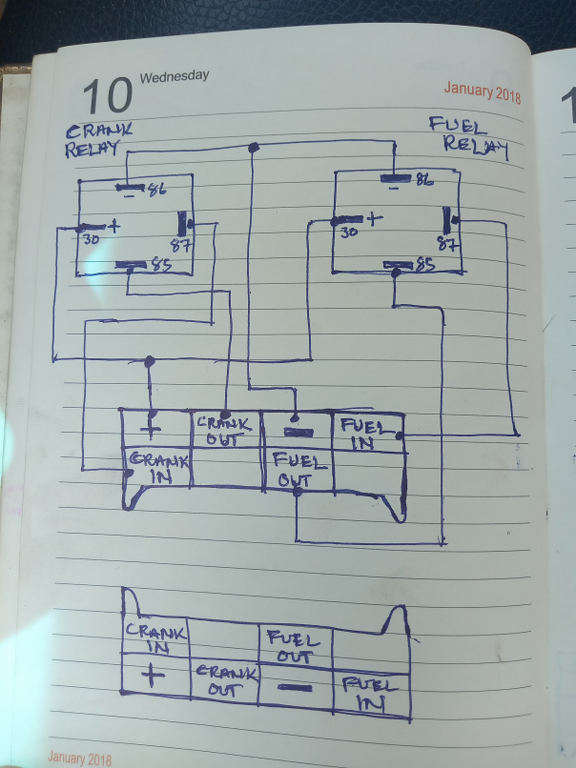 10 Wednesday
January 2018
1
CRANK
RELAY
FUEL
RELAY
86
-
30 +
87
85
86
-
30 +
87
85
+
CRANK
OUT
-
FUEL
IN
CRANK
IN
FUEL
OUT
CRANK
IN
FUEL
OUT
+
CRANK
OUT
-
FUEL
IN
January 2018